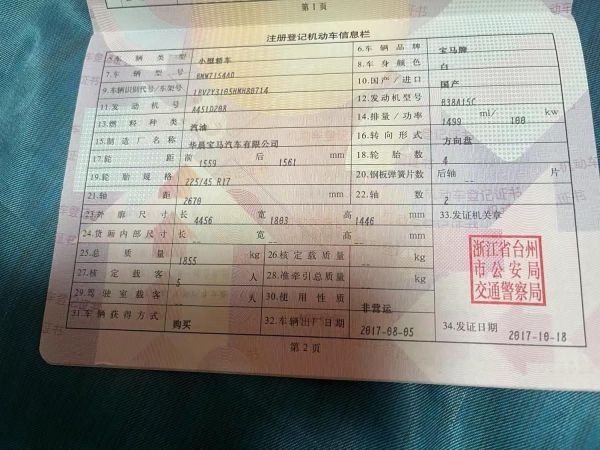 第1页
注册登记机动车信息栏
5.车辆类型 小型轿车 6.车辆品牌 宝马牌
7.车辆型号 BMW7154AD 8.车身颜色 白
9.车辆识别代号/车架号 10.国产/进口 国产
11.发动机号 A451D208 12.发动机型号 B38A15C
13.燃料种类 汽油 14.排量/功率 1499 ml/ 100 kw
15.制造厂名称 华晨宝马汽车有限公司 16.转向形式 方向盘
17.轮距 前 1559 后 1561 mm 18.轮胎数 4
19.轮胎规格 225/45 R17 20.钢板弹簧片数 后轴 -- 片
21.轴距 2670 mm 22.轴数 2
23.外廓尺寸 长 4456 宽 1803 高 1446 mm 33.发证机关章
24.货厢内部尺寸 长 -- 宽 -- 高 -- mm
25.总质量 1855 kg 26.核定载质量 -- kg
27.核定载客 5 人 28.准牵引总质量 -- kg
29.驾驶室载客 -- 人 30.使用性质 非营运
31.车辆获得方式 购买 32.车辆出厂日期 2017-08-05 34.发证日期 2017-10-18
浙江省台州
市公安局
交通警察局
第2页